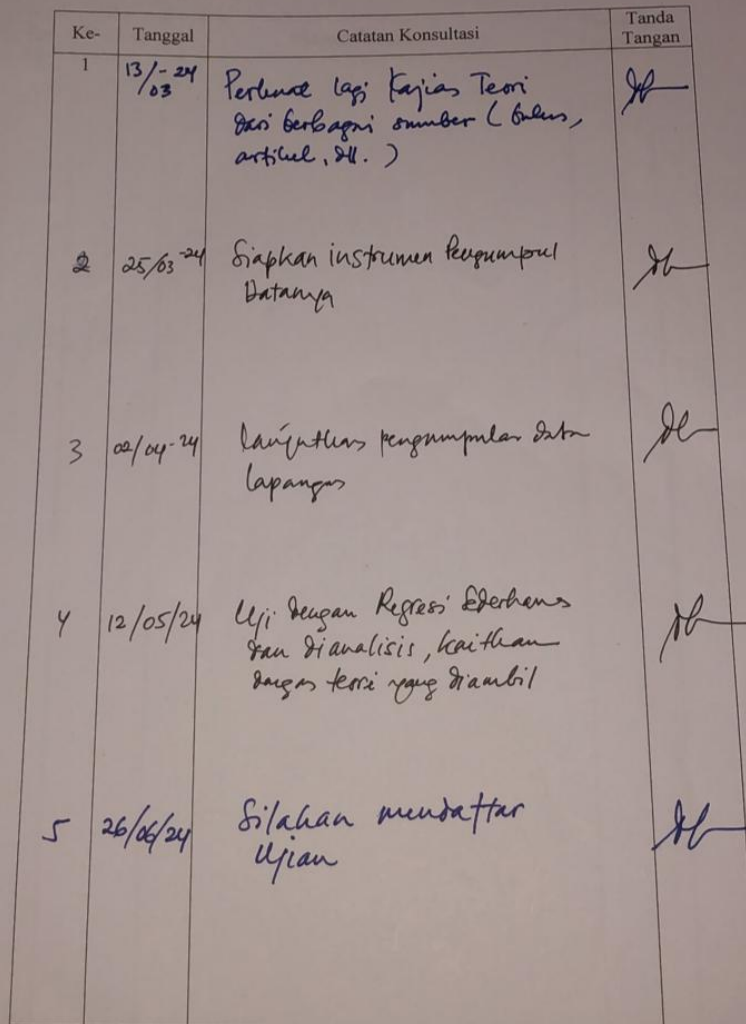 Ke- Tanggal Catatan Konsultasi Tanda Tangan
1 13/03-24 Perkuat lagi Kajian Teori
dari berbagai sumber (buku,
artikel, dll.)
2 25/03-24 Siapkan instrumen Pengumpul
Datanya
3 02/04-24 lanjutkan pengumpulan data
lapangan
4 12/05/24 Uji dengan Regresi Sederhana
dan dianalisis, kaitkan
dengan teori yang diambil
5 26/06/24 Silahan mendaftar
Ujian